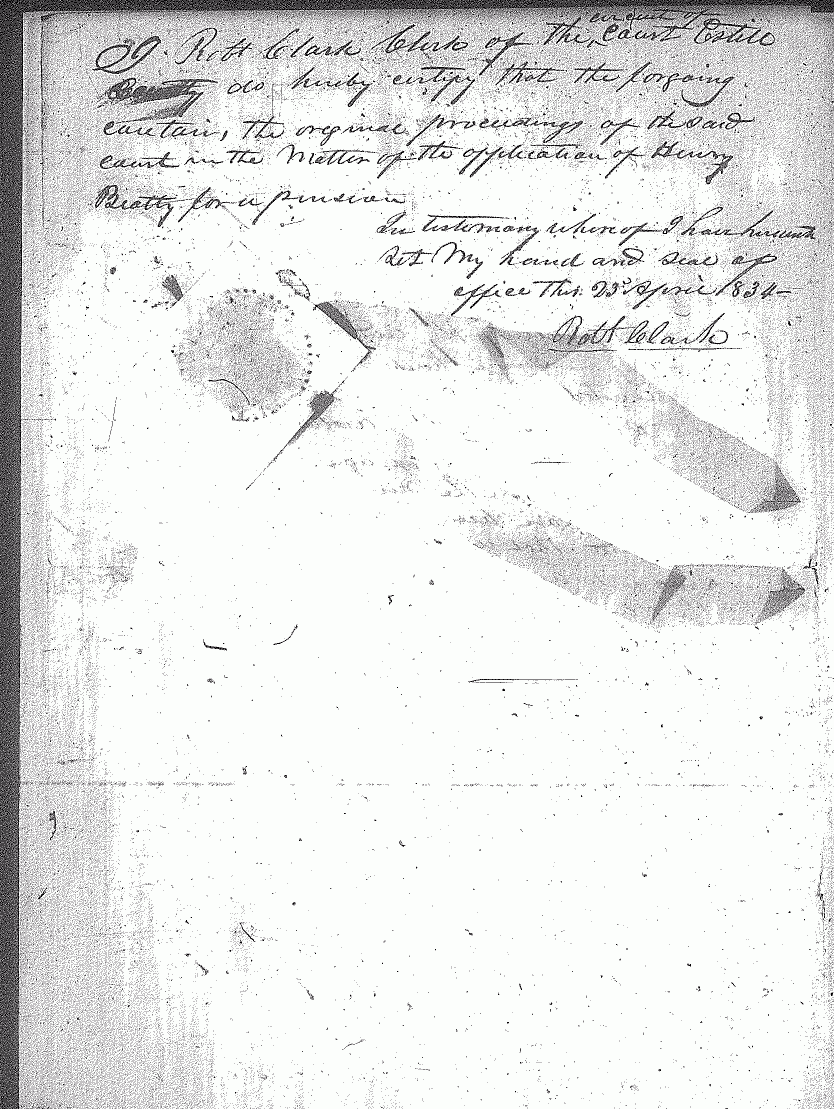 I Robt Clark Clerk of the circuit of Court Estill
County do hereby certify that the forgoing
contain, the original proceedings of the said
court in the Matter of the application of Henry
Beatty for a pension
In testimony where of I have hereunto
set My hand and seal of
office this 23d April 1834
Robt Clark